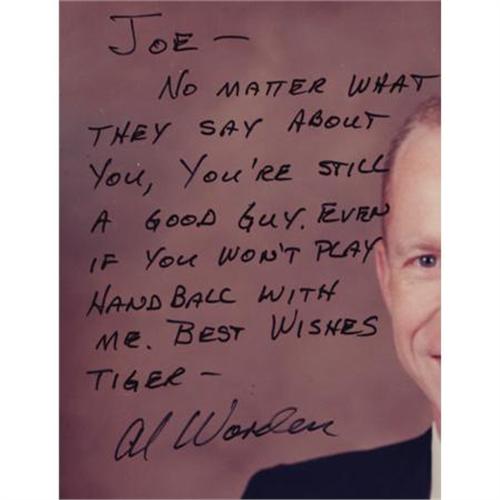 JOE —
NO MATTER WHAT
THEY SAY ABOUT
YOU, YOU'RE STILL
A GOOD GUY. EVEN
IF YOU WON'T PLAY
HANDBALL WITH
ME. BEST WISHES
TIGER —
Al Worden